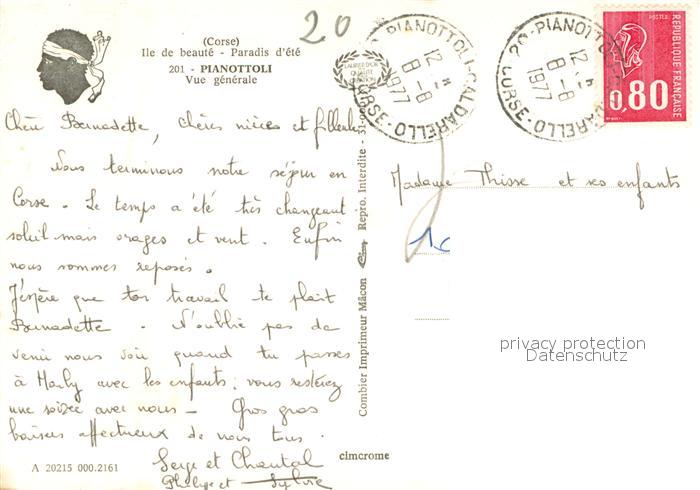 20
(Corse)
Ile de beauté - Paradis d'été
201 - PIANOTTOLI
Vue générale
20-PIANOTTOLI-CALDARELLO
12 H
8-8
1977
CORSE
20-PIANOTTOLI-CALDARELLO
12 H
8-8
1977
CORSE
POSTES
RÉPUBLIQUE FRANÇAISE
0,80
Chère Bernadette, chères nièces et filleule
Nous terminons notre séjour en
Corse. Le temps a été très changeant
soleil mais orages et vent. Enfin
nous sommes reposés.
J'espère que ton travail te plait
Bernadette. N'oublie pas de
venir nous voir quand tu passes
à Marly avec les enfants; vous resterez
une soirée avec nous - Gros gros
baisers affectueux de nous tous.
Serge et Chantal
Philippe et Sylvie
A 20215 000.2161
Combier Imprimeur Mâcon
Repro. Interdite -
cimcrome
Madame Thisse et ses enfants
privacy protection
Datenschutz